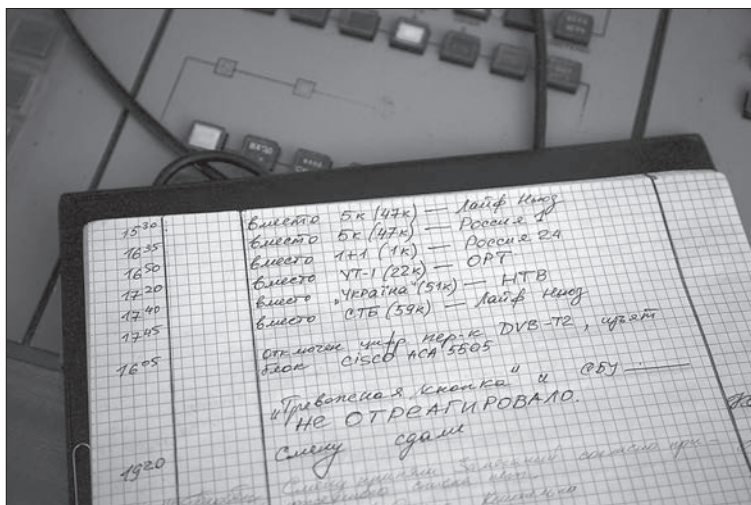 15³⁰ вместо 5к (47к) — Лайф Ньюз
16³⁵ вместо 5к (47к) — Россия 1
16⁵⁰ вместо 1+1 (1к) — Россия 24
17²⁰ вместо УТ-1 (22к) — ОРТ
17⁴⁰ вместо „Україна" (51к) — НТВ
17⁴⁵ вместо СТБ (59к) — Лайф Ньюз
16⁰⁵ отключен цифр пер-к DVB-T2, изъят
блок CISCO ACA 5505
„Тревожная кнопка" и СБУ
НЕ ОТРЕАГИРОВАЛО.
19²⁰ Смену сдали
Смену приняли согласно